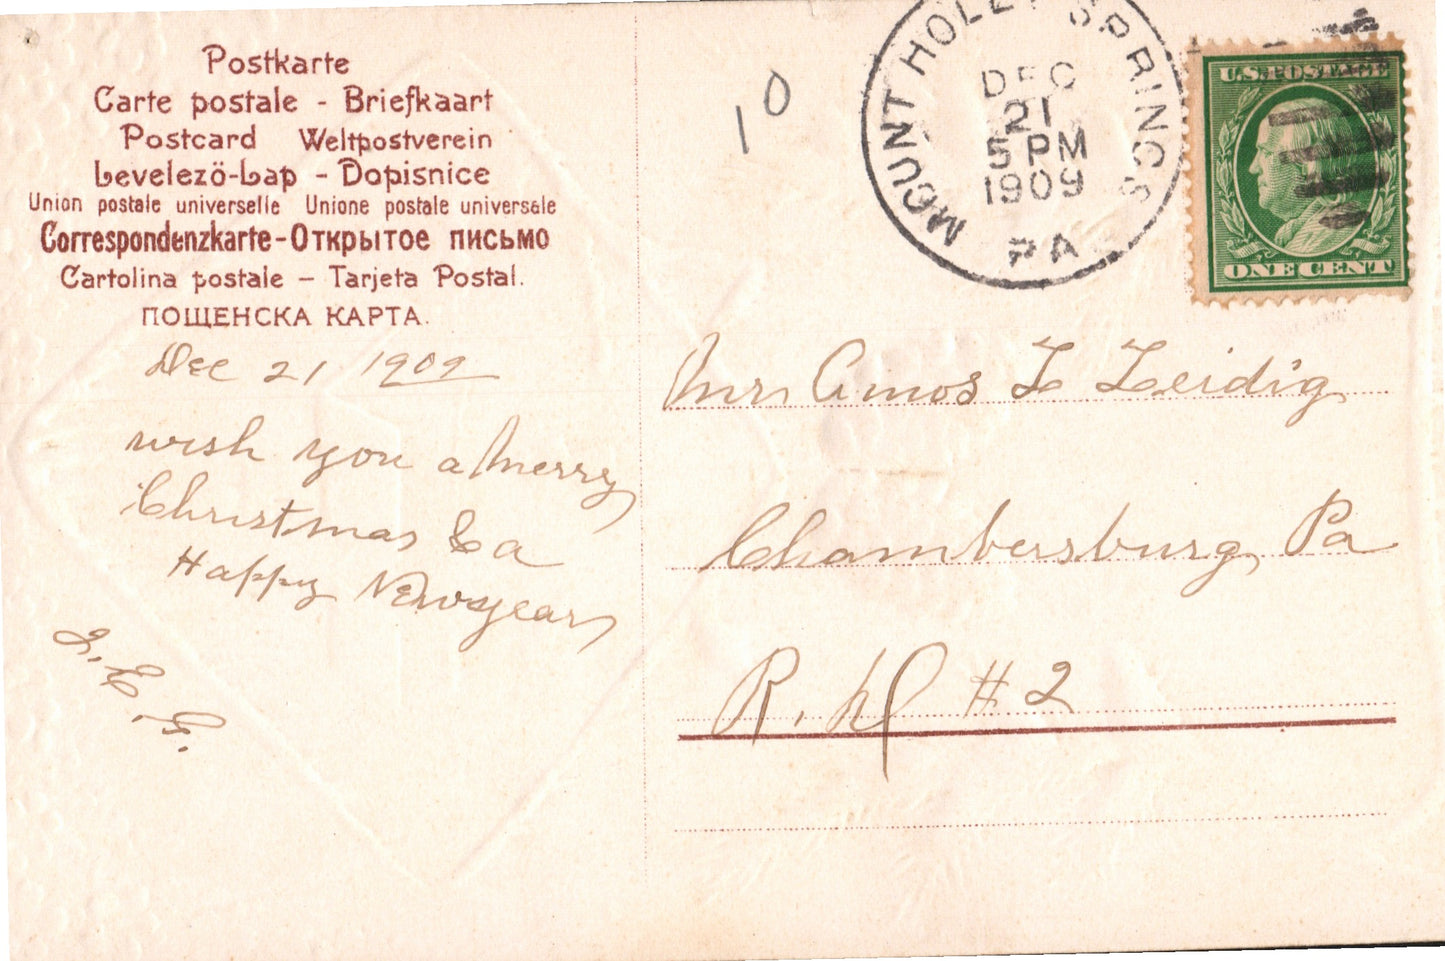 Postkarte
Carte postale - Briefkaart
Postcard Weltpostverein
Levelezö-Lap - Dopisnice
Union postale universelle Unione postale universale
Correspondenzkarte - Открытое письмо
Cartolina postale - Tarjeta Postal.
ПОЩЕНСКА КАРТА.
10
MOUNT HOLLY SPRINGS
DEC
21
5 PM
1909
PA
U.S. POSTAGE
ONE CENT
Dec 21 1909
wish you a Merry
Christmas & a
Happy New year
L. E. G.
Mr Amos L Leidig
Chambersburg Pa
R. # 2